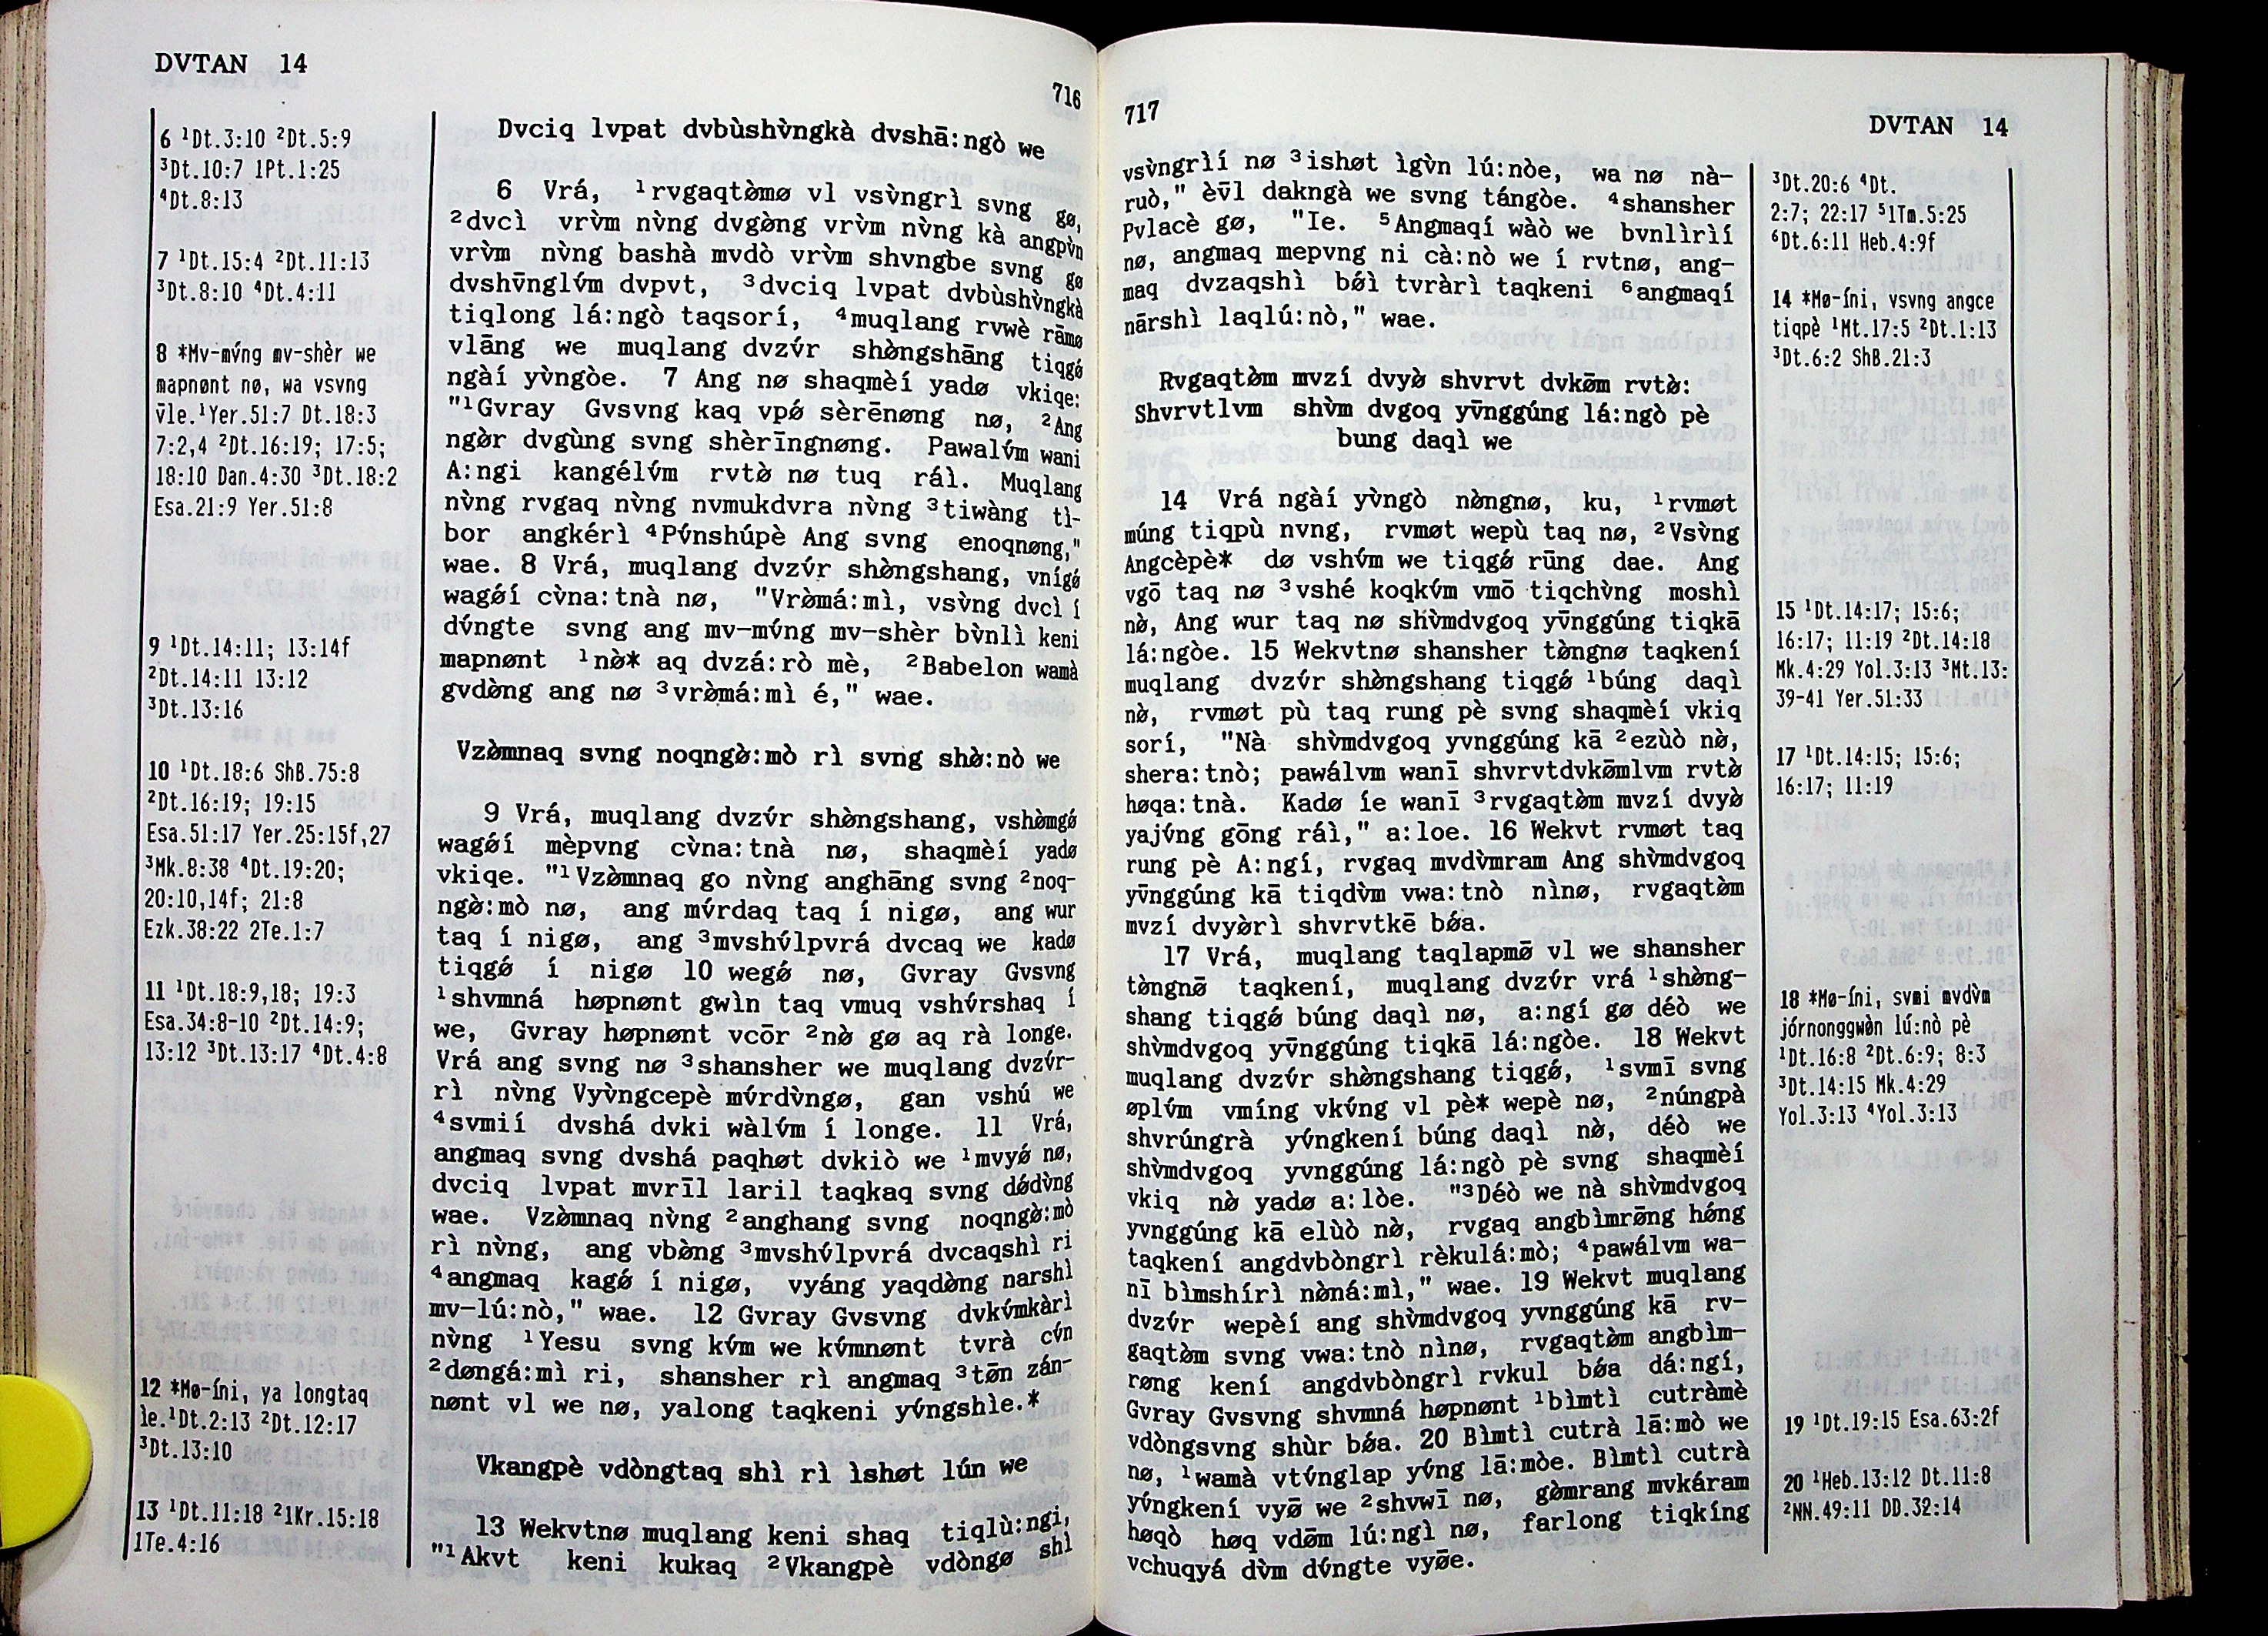 DVTAN 14
716
6 ¹Dt.3:10 ²Dt.5:9
³Dt.10:7 1Pt.1:25
⁴Dt.8:13
7 ¹Dt.15:4 ²Dt.11:13
³Dt.8:10 ⁴Dt.4:11
8 *Mv-mv́ng mv-shèr we
mapnønt nø, wa vsvng
v̄le.¹Yer.51:7 Dt.18:3
7:2,4 ²Dt.16:19; 17:5;
18:10 Dan.4:30 ³Dt.18:2
Esa.21:9 Yer.51:8
9 ¹Dt.14:11; 13:14f
²Dt.14:11 13:12
³Dt.13:16
10 ¹Dt.18:6 ShB.75:8
²Dt.16:19; 19:15
Esa.51:17 Yer.25:15f,27
³Mk.8:38 ⁴Dt.19:20;
20:10,14f; 21:8
Ezk.38:22 2Te.1:7
11 ¹Dt.18:9,18; 19:3
Esa.34:8-10 ²Dt.14:9;
13:12 ³Dt.13:17 ⁴Dt.4:8
12 *Mø-íni, ya longtaq
ìe.¹Dt.2:13 ²Dt.12:17
³Dt.13:10
13 ¹Dt.11:18 ²1Kr.15:18
1Te.4:16
Dvciq lvpat dvbùshv̀ngkà dvshā:ngò we
6 Vrá, ¹rvgaqtø̀mø vl vsv̀ngrì svng gø,
²dvcì vrv̀m nv̀ng dvgø̀ng vrv̀m nv̀ng kà angpv̀n
vrv̀m nv̀ng bashà mvdò vrv̀m shvngbe svng gø
dvshv̄nglv́m dvpvt, ³dvciq lvpat dvbùshv̀ngkà
tiqlong lá:ngò taqsorí, ⁴muqlang rvwè rāmø
vlāng we muqlang dvzv́r shø̀ngshāng tiqgǿ
ngàí yv̀ngòe. 7 Ang nø shaqmèí yadø vkiqe:
"¹Gvray Gvsvng kaq vpǿ sèrēnøng nø, ²Ang
ngø̀r dvgùng svng shèrīngnøng. Pawalv́m wani
A:ngi kangélv́m rvtø̀ nø tuq ráì. Muqlang
nv̀ng rvgaq nv̀ng nvmukdvra nv̀ng ³tiwàng tì-
bor angkérì ⁴Pv́nshúpè Ang svng enoqnøng,"
wae. 8 Vrá, muqlang dvzv́r shø̀ngshang, vnígǿ
wagǿí cv̀na:tnà nø, "Vrø̀má:mì, vsv̀ng dvcì í
dv́ngte svng ang mv-mv́ng mv-shèr bv̀nlì keni
mapnønt ¹nø̀* aq dvzá:rò mè, ²Babelon wamà
gvdø̀ng ang nø ³vrø̀má:mì é," wae.
Vzø̀mnaq svng noqngø̀:mò rì svng shø̀:nò we
9 Vrá, muqlang dvzv́r shø̀ngshang, vshø̀mgǿ
wagǿí mèpvng cv̀na:tnà nø, shaqmèí yadø
vkiqe. "¹Vzø̀mnaq go nv̀ng anghāng svng ²noq-
ngø̀:mò nø, ang mv́rdaq taq í nigø, ang wur
taq í nigø, ang ³mvshv́lpvrá dvcaq we kadø
tiqgǿ í nigø 10 wegǿ nø, Gvray Gvsvng
¹shvmná høpnønt gwìn taq vmuq vshv́rshaq í
we, Gvray høpnønt vcōr ²nø̀ gø aq rà longe.
Vrá ang svng nø ³shansher we muqlang dvzv́r-
rì nv̀ng Vyv̀ngcepè mv́rdv̀ngø, gan vshú we
⁴svmií dvshá dvki wàlv́m í longe. 11 Vrá,
angmaq svng dvshá paqhøt dvkiò we ¹mvyǿ nø,
dvciq lvpat mvrīl laril taqkaq svng dǿdv̀ng
wae. Vzø̀mnaq nv̀ng ²anghang svng noqngø̀:mò
rì nv̀ng, ang vbø̀ng ³mvshv́lpvrá dvcaqshì ri
⁴angmaq kagǿ í nigø, vyáng yaqdø̀ng narshì
mv-lú:nò," wae. 12 Gvray Gvsvng dvkv́mkàrì
nv̀ng ¹Yesu svng kv́m we kv́mnønt tvrà cv́n
²døngá:mì ri, shansher rì angmaq ³tø̄n zán-
nønt vl we nø, yalong taqkeni yv́ngshìe.*
Vkangpè vdòngtaq shì rì ìshøt lún we
13 Wekvtnø muqlang keni shaq tiqlù:ngi,
"¹Akvt keni kukaq ²Vkangpè vdòngø shì
717
DVTAN 14
vsv̀ngrìí nø ³ishøt ìgv̀n lú:nòe, wa nø nà-
ruò," èv̄l dakngà we svng tángòe. ⁴shansher
Pvlacè gø, "Ie. ⁵Angmaqí wàò we bvnlìrìí
nø, angmaq mepvng ni cà:nò we í rvtnø, ang-
maq dvzaqshì bǿì tvràrì taqkeni ⁶angmaqí
nārshì laqlú:nò," wae.
Rvgaqtø̀m mvzí dvyø̀ shvrvt dvkø̄m rvtø̀:
Shvrvtlvm shv̀m dvgoq yv̄nggúng lá:ngò pè
bung daqì we
14 Vrá ngàí yv̀ngò nø̀ngnø, ku, ¹rvmøt
múng tiqpù nvng, rvmøt wepù taq nø, ²Vsv̀ng
Angcèpè* dø vshv́m we tiqgǿ rūng dae. Ang
vgō taq nø ³vshé koqkv́m vmō tiqchv̀ng moshì
nø̀, Ang wur taq nø shv̀mdvgoq yv̄nggúng tiqkā
lá:ngòe. 15 Wekvtnø shansher tø̀ngnø taqkení
muqlang dvzv́r shø̀ngshang tiqgǿ ¹búng daqì
nø̀, rvmøt pù taq rung pè svng shaqmèí vkiq
sorí, "Nà shv̀mdvgoq yvnggúng kā ²ezùò nø̀,
shera:tnò; pawálvm wanī shvrvtdvkø̄mlvm rvtø̀
høqa:tnà. Kadø íe wanī ³rvgaqtø̀m mvzí dvyø̀
yajv́ng gōng ráì," a:loe. 16 Wekvt rvmøt taq
rung pè A:ngí, rvgaq mvdv̀mram Ang shv̀mdvgoq
yv̄nggúng kā tiqdv̀m vwa:tnò nìnø, rvgaqtø̀m
mvzí dvyø̀rì shvrvtkē bǿa.
17 Vrá, muqlang taqlapmø̄ vl we shansher
tø̀ngnø̄ taqkení, muqlang dvzv́r vrá ¹shø̀ng-
shang tiqgǿ búng daqì nø, a:ngí gø déò we
shv̀mdvgoq yv̄nggúng tiqkā lá:ngòe. 18 Wekvt
muqlang dvzv́r shø̀ngshang tiqgǿ, ¹svmī svng
øplv́m vmíng vkv́ng vl pè* wepè nø, ²núngpà
shvrúngrà yv́ngkení búng daqì nø̀, déò we
shv̀mdvgoq yvnggúng lá:ngò pè svng shaqmèí
vkiq nø̀ yadø a:lòe. "³Déò we nà shv̀mdvgoq
yvnggúng kā elùò nø̀, rvgaq angbìmrø̄ng hǿng
taqkení angdvbòngrì rèkulá:mò; ⁴pawálvm wa-
nī bìmshírì nø̀ná:mì," wae. 19 Wekvt muqlang
dvzv́r wepèí ang shv̀mdvgoq yvnggúng kā rv-
gaqtø̀m svng vwa:tnò nìnø, rvgaqtø̀m angbìm-
røng kení angdvbòngrì rvkul bǿa dá:ngí,
Gvray Gvsvng shvmná høpnønt ¹bìmtì cutràmè
vdòngsvng shùr bǿa. 20 Bìmtì cutrà lā:mò we
nø, ¹wamà vtv́nglap yv́ng lā:mòe. Bìmtì cutrà
yv́ngkení vyø̄ we ²shvwī nø, gø̀mrang mvkáram
høqò høq vdø̄m lú:ngì nø, farlong tiqkíng
vchuqyá dv̀m dv́ngte vyø̄e.
³Dt.20:6 ⁴Dt.
2:7; 22:17 ⁵1Tm.5:25
⁶Dt.6:11 Heb.4:9f
14 *Mø-íni, vsvng angce
tiqpè ¹Mt.17:5 ²Dt.1:13
³Dt.6:2 ShB.21:3
15 ¹Dt.14:17; 15:6;
16:17; 11:19 ²Dt.14:18
Mk.4:29 Yol.3:13 ³Mt.13:
39-41 Yer.51:33
17 ¹Dt.14:15; 15:6;
16:17; 11:19
18 *Mø-íni, svmi mvdv̀m
jórnonggwø̀n lú:nò pè
¹Dt.16:8 ²Dt.6:9; 8:3
³Dt.14:15 Mk.4:29
Yol.3:13 ⁴Yol.3:13
19 ¹Dt.19:15 Esa.63:2f
20 ¹Heb.13:12 Dt.11:8
²NN.49:11 DD.32:14